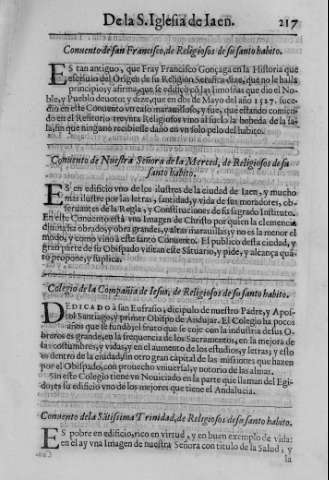 De la S. Iglesia de Iaen. 217
Conuento de san Francisco, de Religiosos de su santo habito.
ES tan antiguo, que Fray Francisco Gonçaga en la Historia que
escriuio del Origen de su Religion Serafica dize, que no le halla
principios, y afirma, que se edificò cõ las limosnas que dio el No-
ble, y Pueblo deuoto; y dize, que en dos de Mayo del año 1527. suce-
dio en este Conuento vn caso marauilloso, y fue, que estando comiẽ-
do en el Refitorio treynta Religiosos vino al suelo la bobeda de la sa-
la, sin que ninguno recibiesse daño en vn solo pelo del habito.
Conuento de Nuestra Señora de la Merced, de Religiosos de su
santo habito.
ES en edificio vno de los ilustres de la ciudad de Iaen, y mucho
mas ilustre por las letras, santidad, y vida de sus moradores, ob-
seruantes de la Regla, y Constituciones de su sagrado Instituto.
En este Conuento està vna Imagen de Christo por quien la clemencia
diuina ha obrado, y obra grandes, y altas marauillas; y no es la menor el
modo, y como vino à este santo Conuento. El publico desta ciudad, y
gran parte de su Obispado visitan este Sãtuario, y pide, y alcança quã-
to propone, y suplica.
Colegio de la Compañia de Iesus, de Religiosos de su santo habito.
DEDICADO à san Eufrasio, dicipulo de nuestro Padre, y Apos-
tol Santiago, y primer Obispo de Andujar. El Colegio ha pocos
años que se fundò, el fruto que se coje con la industria destos O-
breros es grande, en la frequencia de los Sacramentos, en la mejora de
las costumbres, y vidas, y en el aumento de los estudios, y letras; y esto
es dentro de la ciudad, sin otro gran capital de las missiones que hazen
por el Obispado, con prouecho vniuersal, y notorio de las almas.
Sin este Colegio tiene vn Nouiciado en la parte que llaman del Egi-
do, es su edificio vno de los mejores que tiene el Andalucia.
Conuento de la Sãtissima Trinidad, de Religiosos de su santo habito.
ES pobre en edificio, rico en virtud, y en buen exemplo de vida:
en el ay vna Imagen de nuestra Señora con titulo de la Salud, y
la